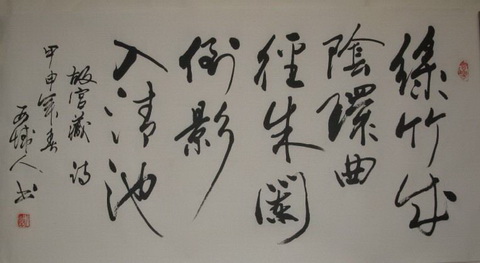 綠竹成
陰環曲
徑朱闌
倒影
入清池
故宮藏诗
甲申年春
西城人书